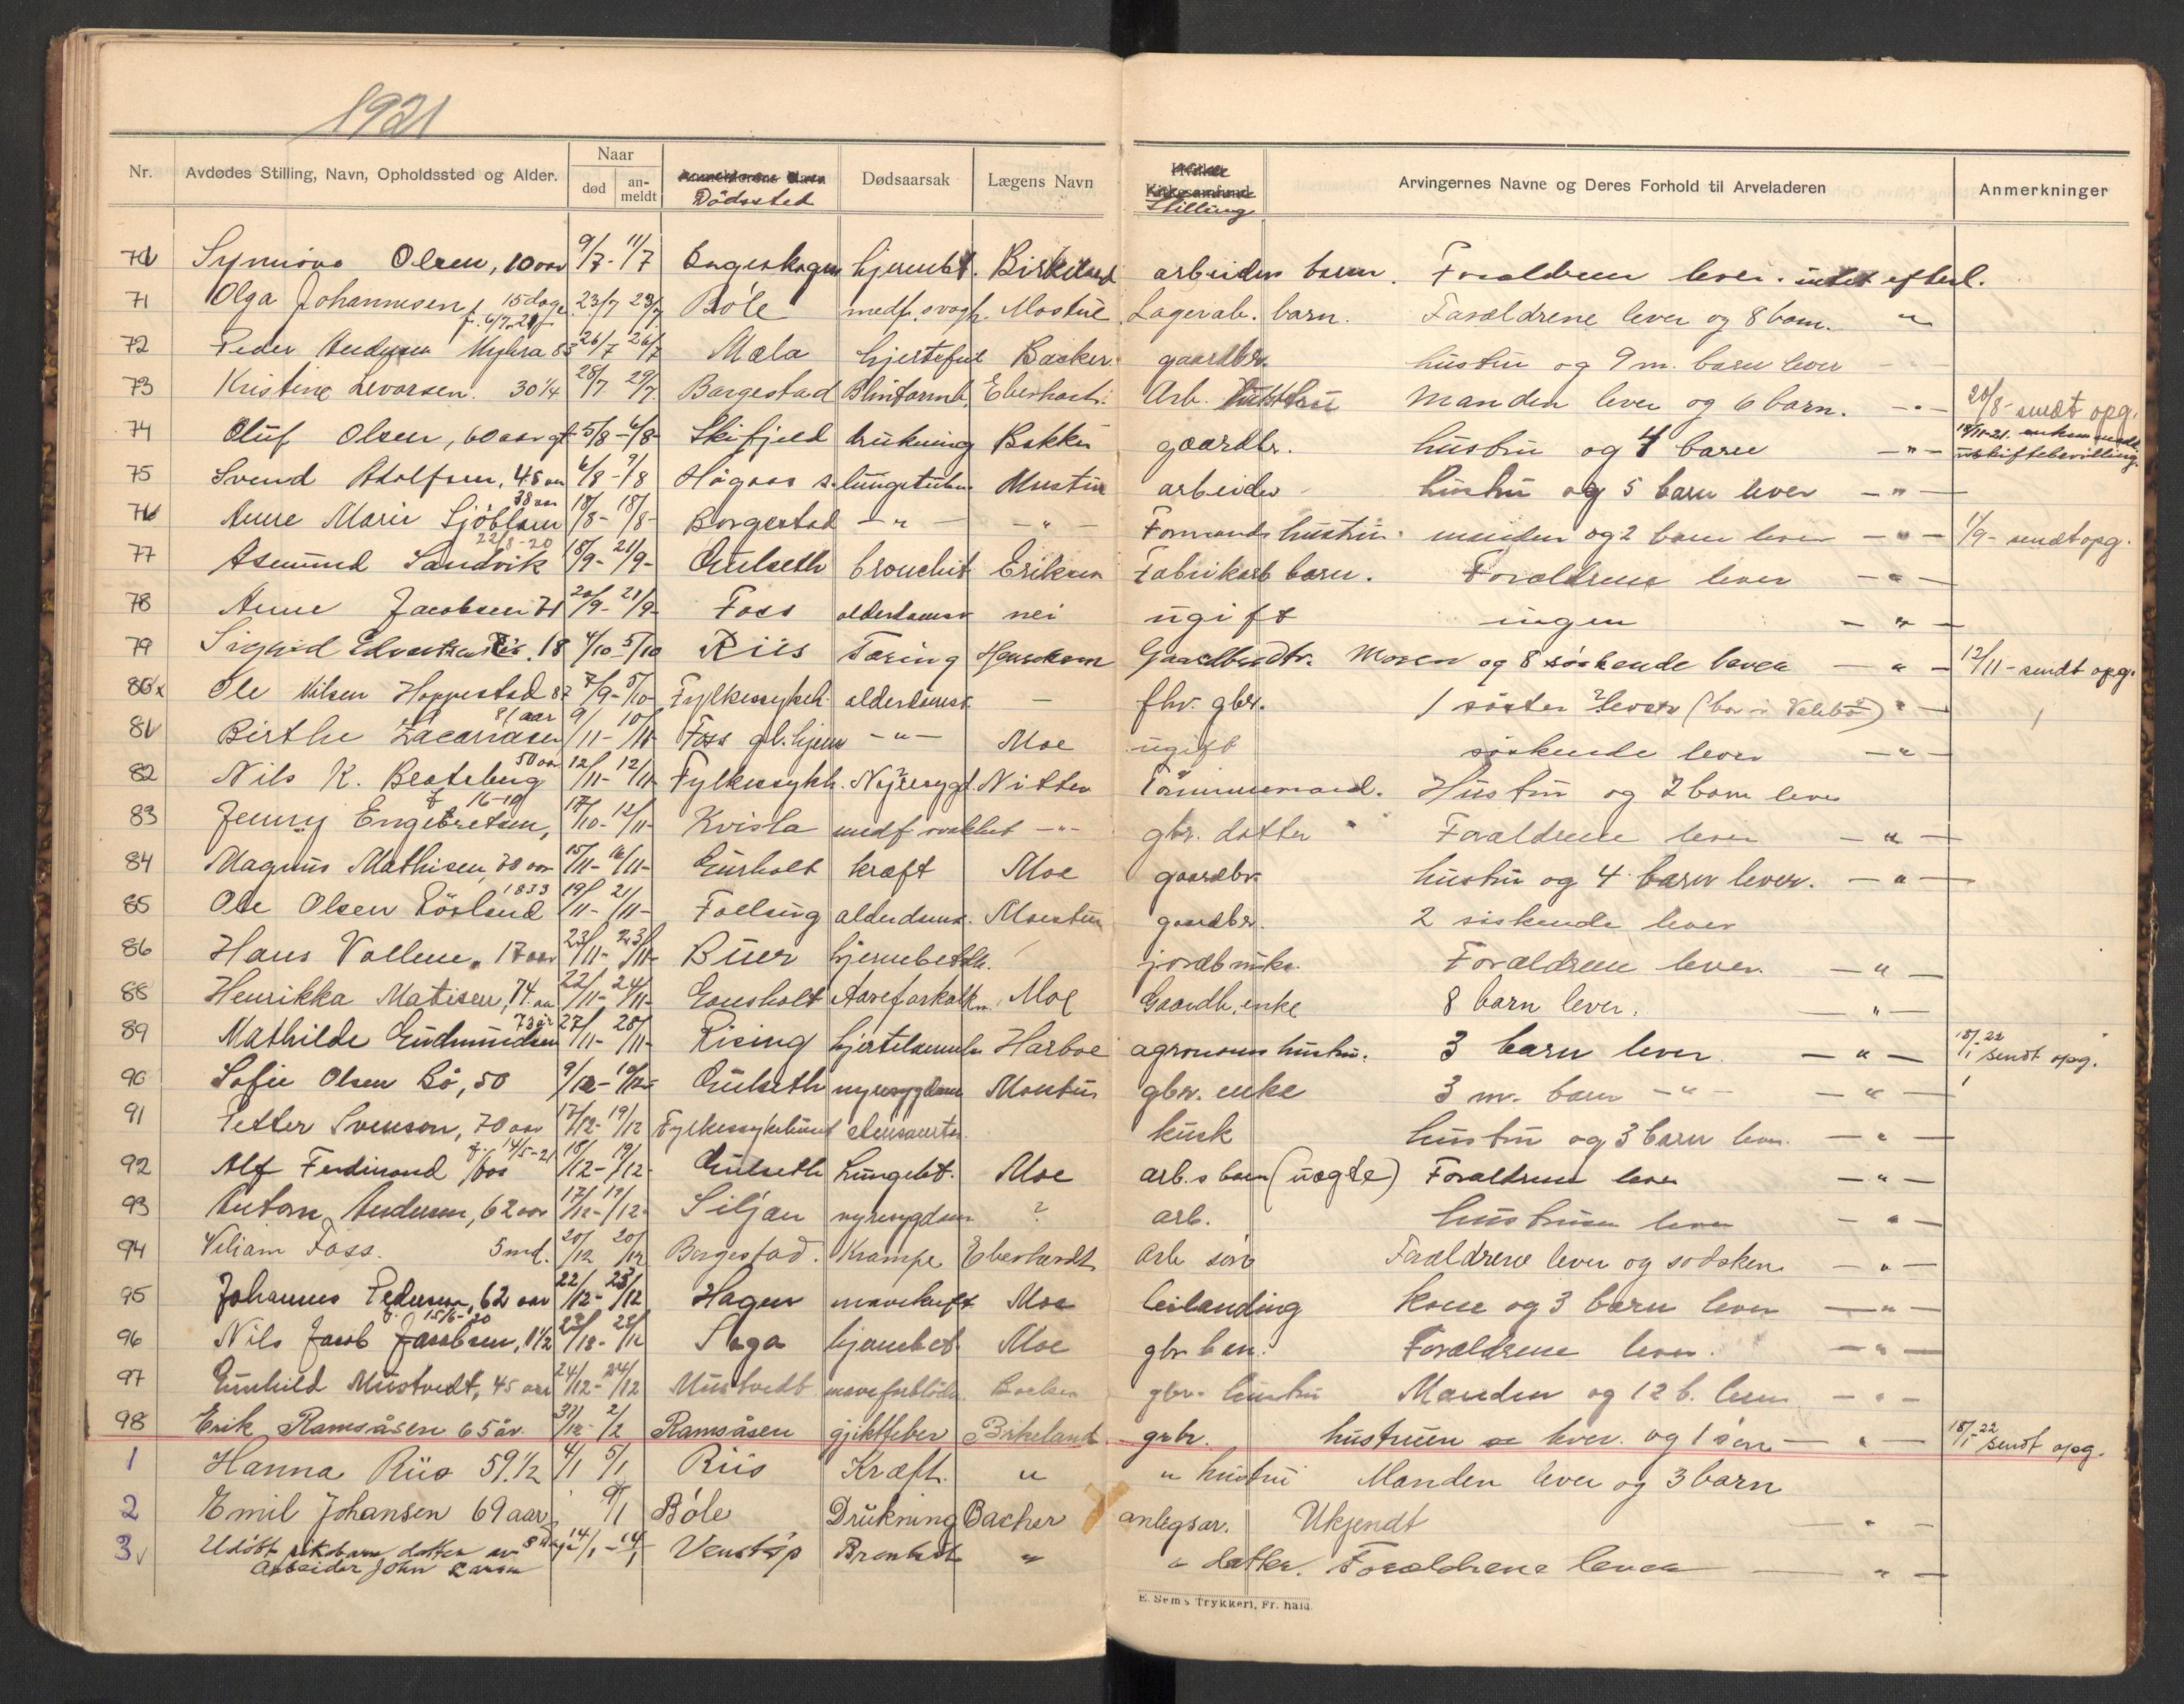 1921
Nr. Avdødes Stilling, Navn, Opholdssted og Alder. Naar død anmeldt Dödssted Dødsaarsak Lægens Navn Stilling Arvingernes Navne og Deres Forhold til Arveladeren Anmerkninger
70 Synnöve Olsen, 10 aar 9/7- 11/7 hjernebt. Birkeland arbeiders barn. Forældrene lever. intet efterl.
71 Olga Johannesen, 15 dage f. 6/7-21 23/7 23/7 Böle medf. svagh. Mostue Lagerab. barn. Forældrene lever og 8 barn. "
72 Peder Andersen Myhra 83 26/7 26/7 Mæla hjertefeil Backer gaardbr. hustru og 9 m. barn lever
73 Kristine Levorsen. 30 1/4 28/7 29/7 Borgestad Blintarmb. Eberhart. Arb. hustru Manden lever og 6 barn. - " - 20/8- sendt opg.
74 Oluf Olsen, 60 aar gl 5/8- 6/8- Skifjeld drukning Bakken gaardbr. hustru og 4 barn - " - uskiftebevilling.
75 Svend Adolfsen, 45 aar 6/8- 9/8 Högaas s. lungetub. Mustue arbeider hustru og 5 barn lever - " -
76 Anne Marie Sjöblom 38 aar 18/8- 18/8- Borgestad - " - - " - Formands hustru. manden og 2 barn lever - " - 1/9- sendt opg.
77 Asmund Sandvik 22/8-20 18/9- 21/9- Gulseth bronchit Eriksen Fabrikarb barn. Forældrene lever - " -
78 Anne Jacobsen 71 20/9- 21/9- Foss alderdomsv nei ugift ingen - " -
79 Sigrid Riis. 18 4/10 5/10 Riis Tæring Gaardbrdtr. Moren og 8 söskende lever - " - 12/11- sendt opg.
80 x Ole Nilsen Hoppestad 87 7/9- 5/10- Fylkessykeh. alderdomsv. - fhv. gbr. 1 söster lever (bor i Valebö) " -
81 v Birthe Zacariasen 81 aar 9/11- 10/11- Foss gl. hjem - " - Moe ugift söskende lever - " -
82 Nils K. Bestebeng 50 aar 12/11- 12/11- Fylkessykh. Nyresygd. Nitter Tömmermand. Hustru og 7 barn lever
83 Jenny Engebretsen, f 16-10 17/10- 12/11- Kvisla medf. svakhet - " - gbr. datter Forældrene lever - " -
84 Magnus Mathisen, 70 aar 15/11- 16/11- kræft Moe gaardbr. hustru og 4 barn lever. - " -
85 Ole Olsen 1833 19/11- 21/11- alderdoms. Mostue gaardbr. 2 söskende lever
86 Hans Vollene, 17 aar 23/11- 23/11- Buer hjernebetænd. jordbruks. Forældrene lever. - " -
88 Henrikka Matisen, 74 aar 22/11- 24/11- Aareforkalkn. Moe Gaardb. enke 8 barn lever. - " -
89 Mathilde Gudmundsen 73 år 27/11- 28/11- Rising hjertelammelse Harboe agronoms hustru. 3 barn lever. - " - 18/1 22 sendt opg.
90 Sofie Olsen Bö, 50 9/12- 10/12- Gulseth nyresygdom Mostue gbr. enke 3 m. barn - " - - " -
91 Petter Svenson, 70 aar 17/12- 19/12 Fylkessykehuset kusk hustru og 3 barn lever. - " -
92 Alf Ferdinand Foss f. 14/5-21 18/12- 19/12- Gulseth Lungebt. Moe arb.s barn (uægte) Forældrene lever - " -
93 Anton Andersen, 62 aar 17/12- 19/12- Siljan nyresygdom ? arb. hustruen lever - " -
94 Viliam Foss. 5 md. 20/12 20/12 Borgestad. Krampe Eberhardt Arb sön Forældrene lever og södsken - " -
95 Johannes Pedersen, 62 aar 22/12- 23/12 Hagen mavekreft Moe leilending Kone og 3 barn lever - " -
96 Nils Jacob Jacobsen, 1 1/2 f. 15/6-20 23/12- 23/12 Saga hjernebet. Moe gbr barn. Forældrene lever. - " -
97 Gunhild Mustvedt, 45 aar 24/12- 24/12 Mustvedt maveforblödn. gbr. hustru Manden og 12 b. lever - " -
98 Erik Ramsåsen 65 år. 31/12- 2/2 Ramsåsen gjiktfeber Birkeland gbr. hustruen lever. og 1 sön - " - 18/1 22 sendt opg.
1 Hanna Riis 59. 1/2 4/1 5/1 Riis Kræft. " " hustru Manden lever og 3 barn
2 Emil Johansen 69 aar 9/1 Böle Drukning Bacher anlegsar. Ukjendt - " -
3 v Udöbt pikebarn datter av 14/1- 14/1 Venstöp Bronkit " " datter. Forældrene lever - " -
Arbeider John Larsen
E. Sem's Trykkeri, Fr. hald.